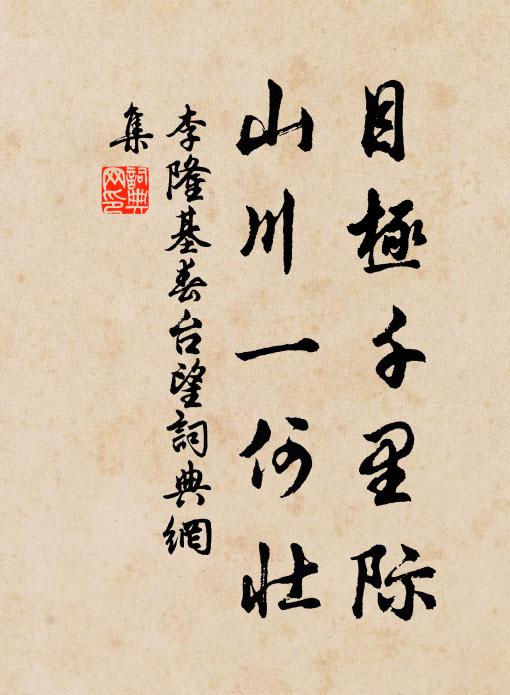 目極千里际
山川一何壮
李隆基春台望詞典網
集
詞典
网印